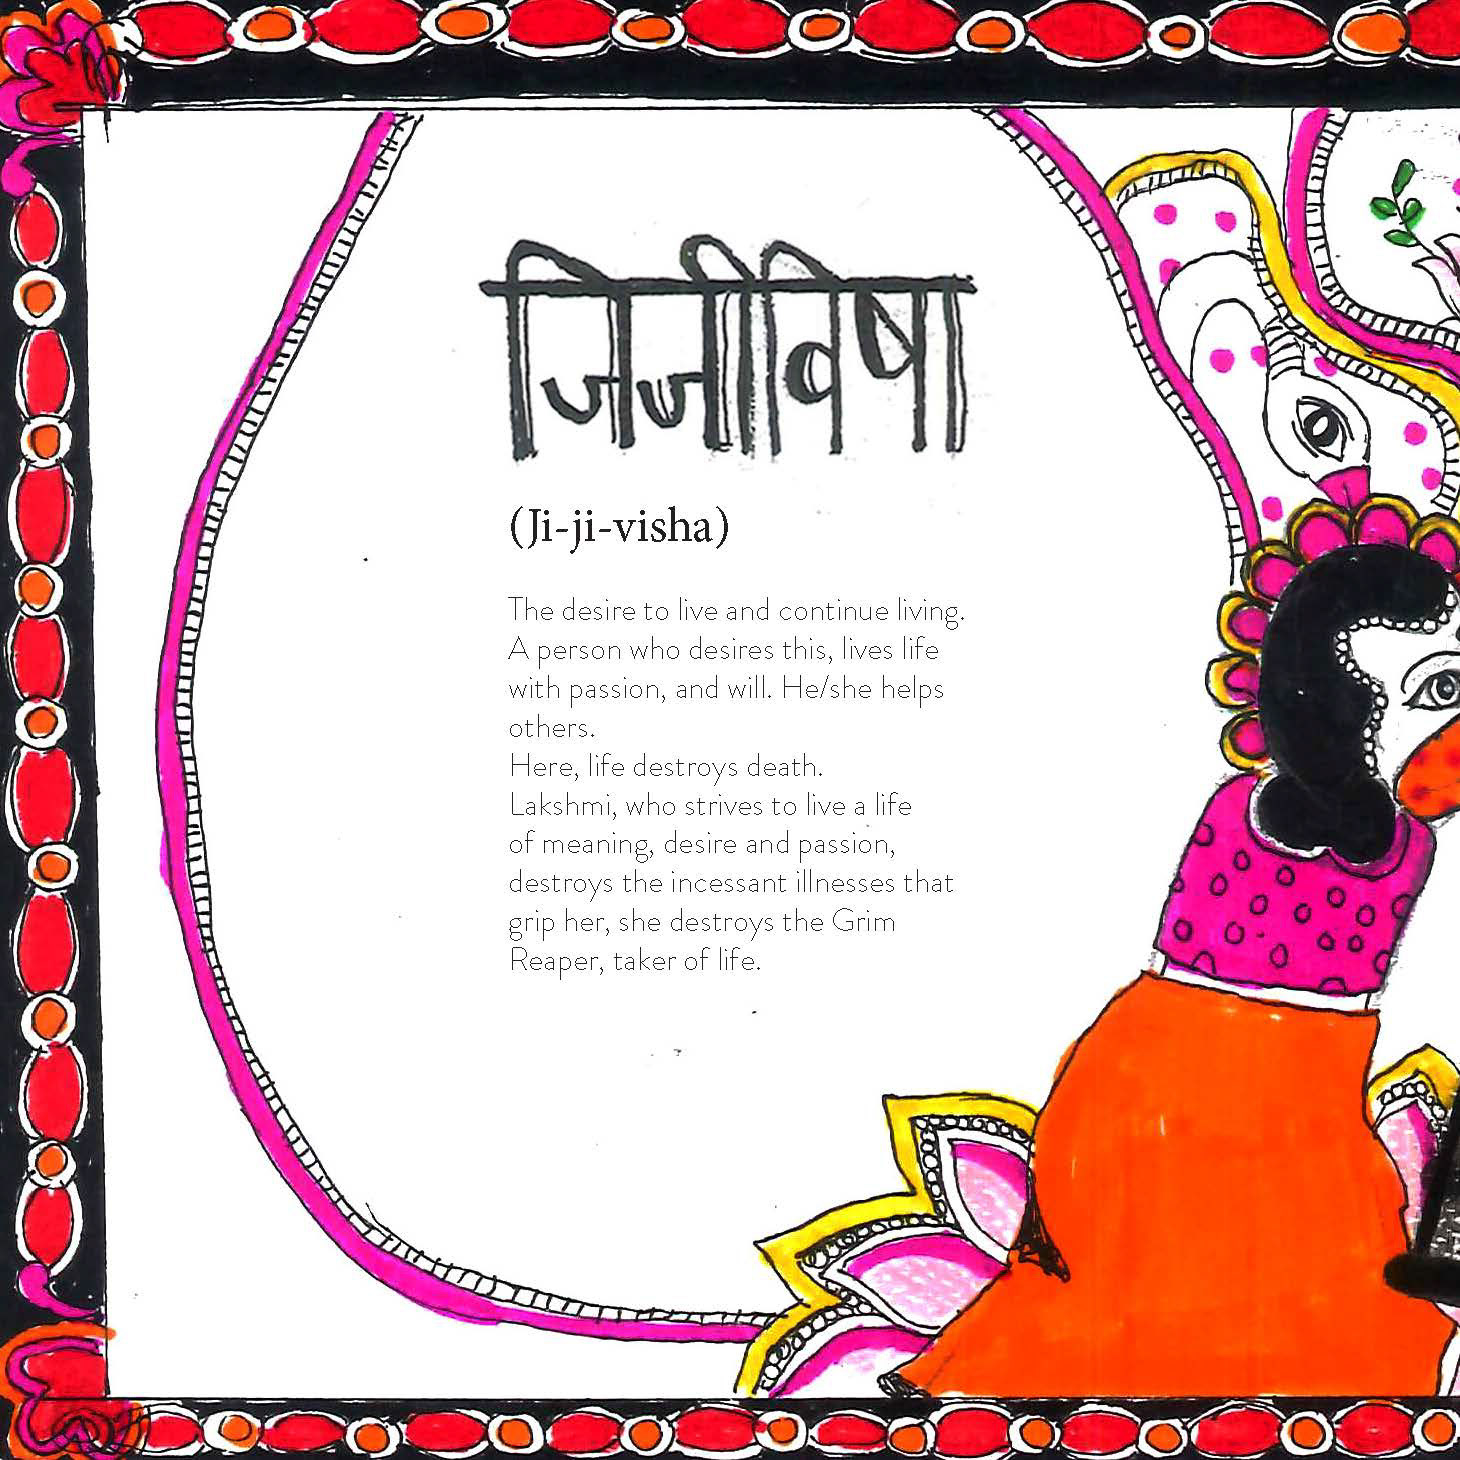 जिजीविषा
(Ji-ji-visha)
The desire to live and continue living.
A person who desires this, lives life
with passion, and will. He/she helps
others.
Here, life destroys death.
Lakshmi, who strives to live a life
of meaning, desire and passion,
destroys the incessant illnesses that
grip her, she destroys the Grim
Reaper, taker of life.